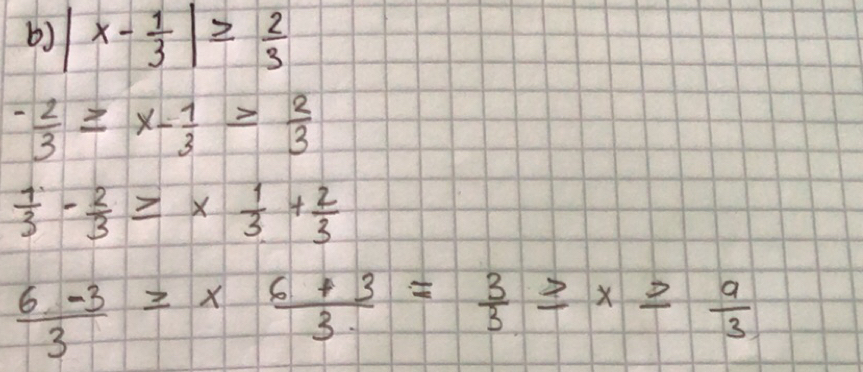 b) | x - 1/3 | ≥ 2/3
- 2/3 ≥ x - 1/3 ≥ 2/3
1/3 - 2/3 ≥ x 1/3 + 2/3
6 - 3/3 ≥ x 6 + 3/3 = 3/3 ≥ x ≥ 9/3